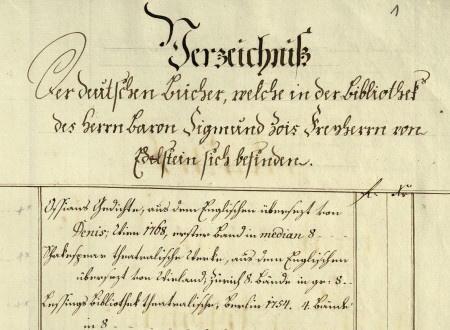 1
Verzeichniß
Der deutschen Bücher, welche in der Bibliothek
des Herrn Baron Sigmund Zois Freyherrn von
Edelstein sich befinden.
Ossians Gedichte, aus dem Englischen übersezt von
Denis, Wien 1768, erster Band in median 8
Shakespear theatralische Werke, aus dem Englischen
übersezt von Wieland, Zürich 8. Bände in gr: 8
Lessings Bibliothek theatralische, Berlin 1754. 4. Bände
in 8